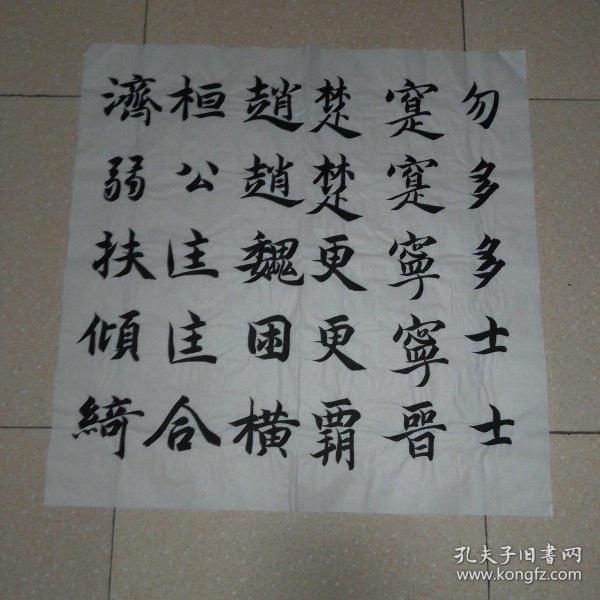 勿多多士士
寔寔寧寧晉
楚楚更更覇
趙趙魏困橫
桓公匡匡合
濟弱扶傾綺
孔夫子旧书网
www.kongfz.com